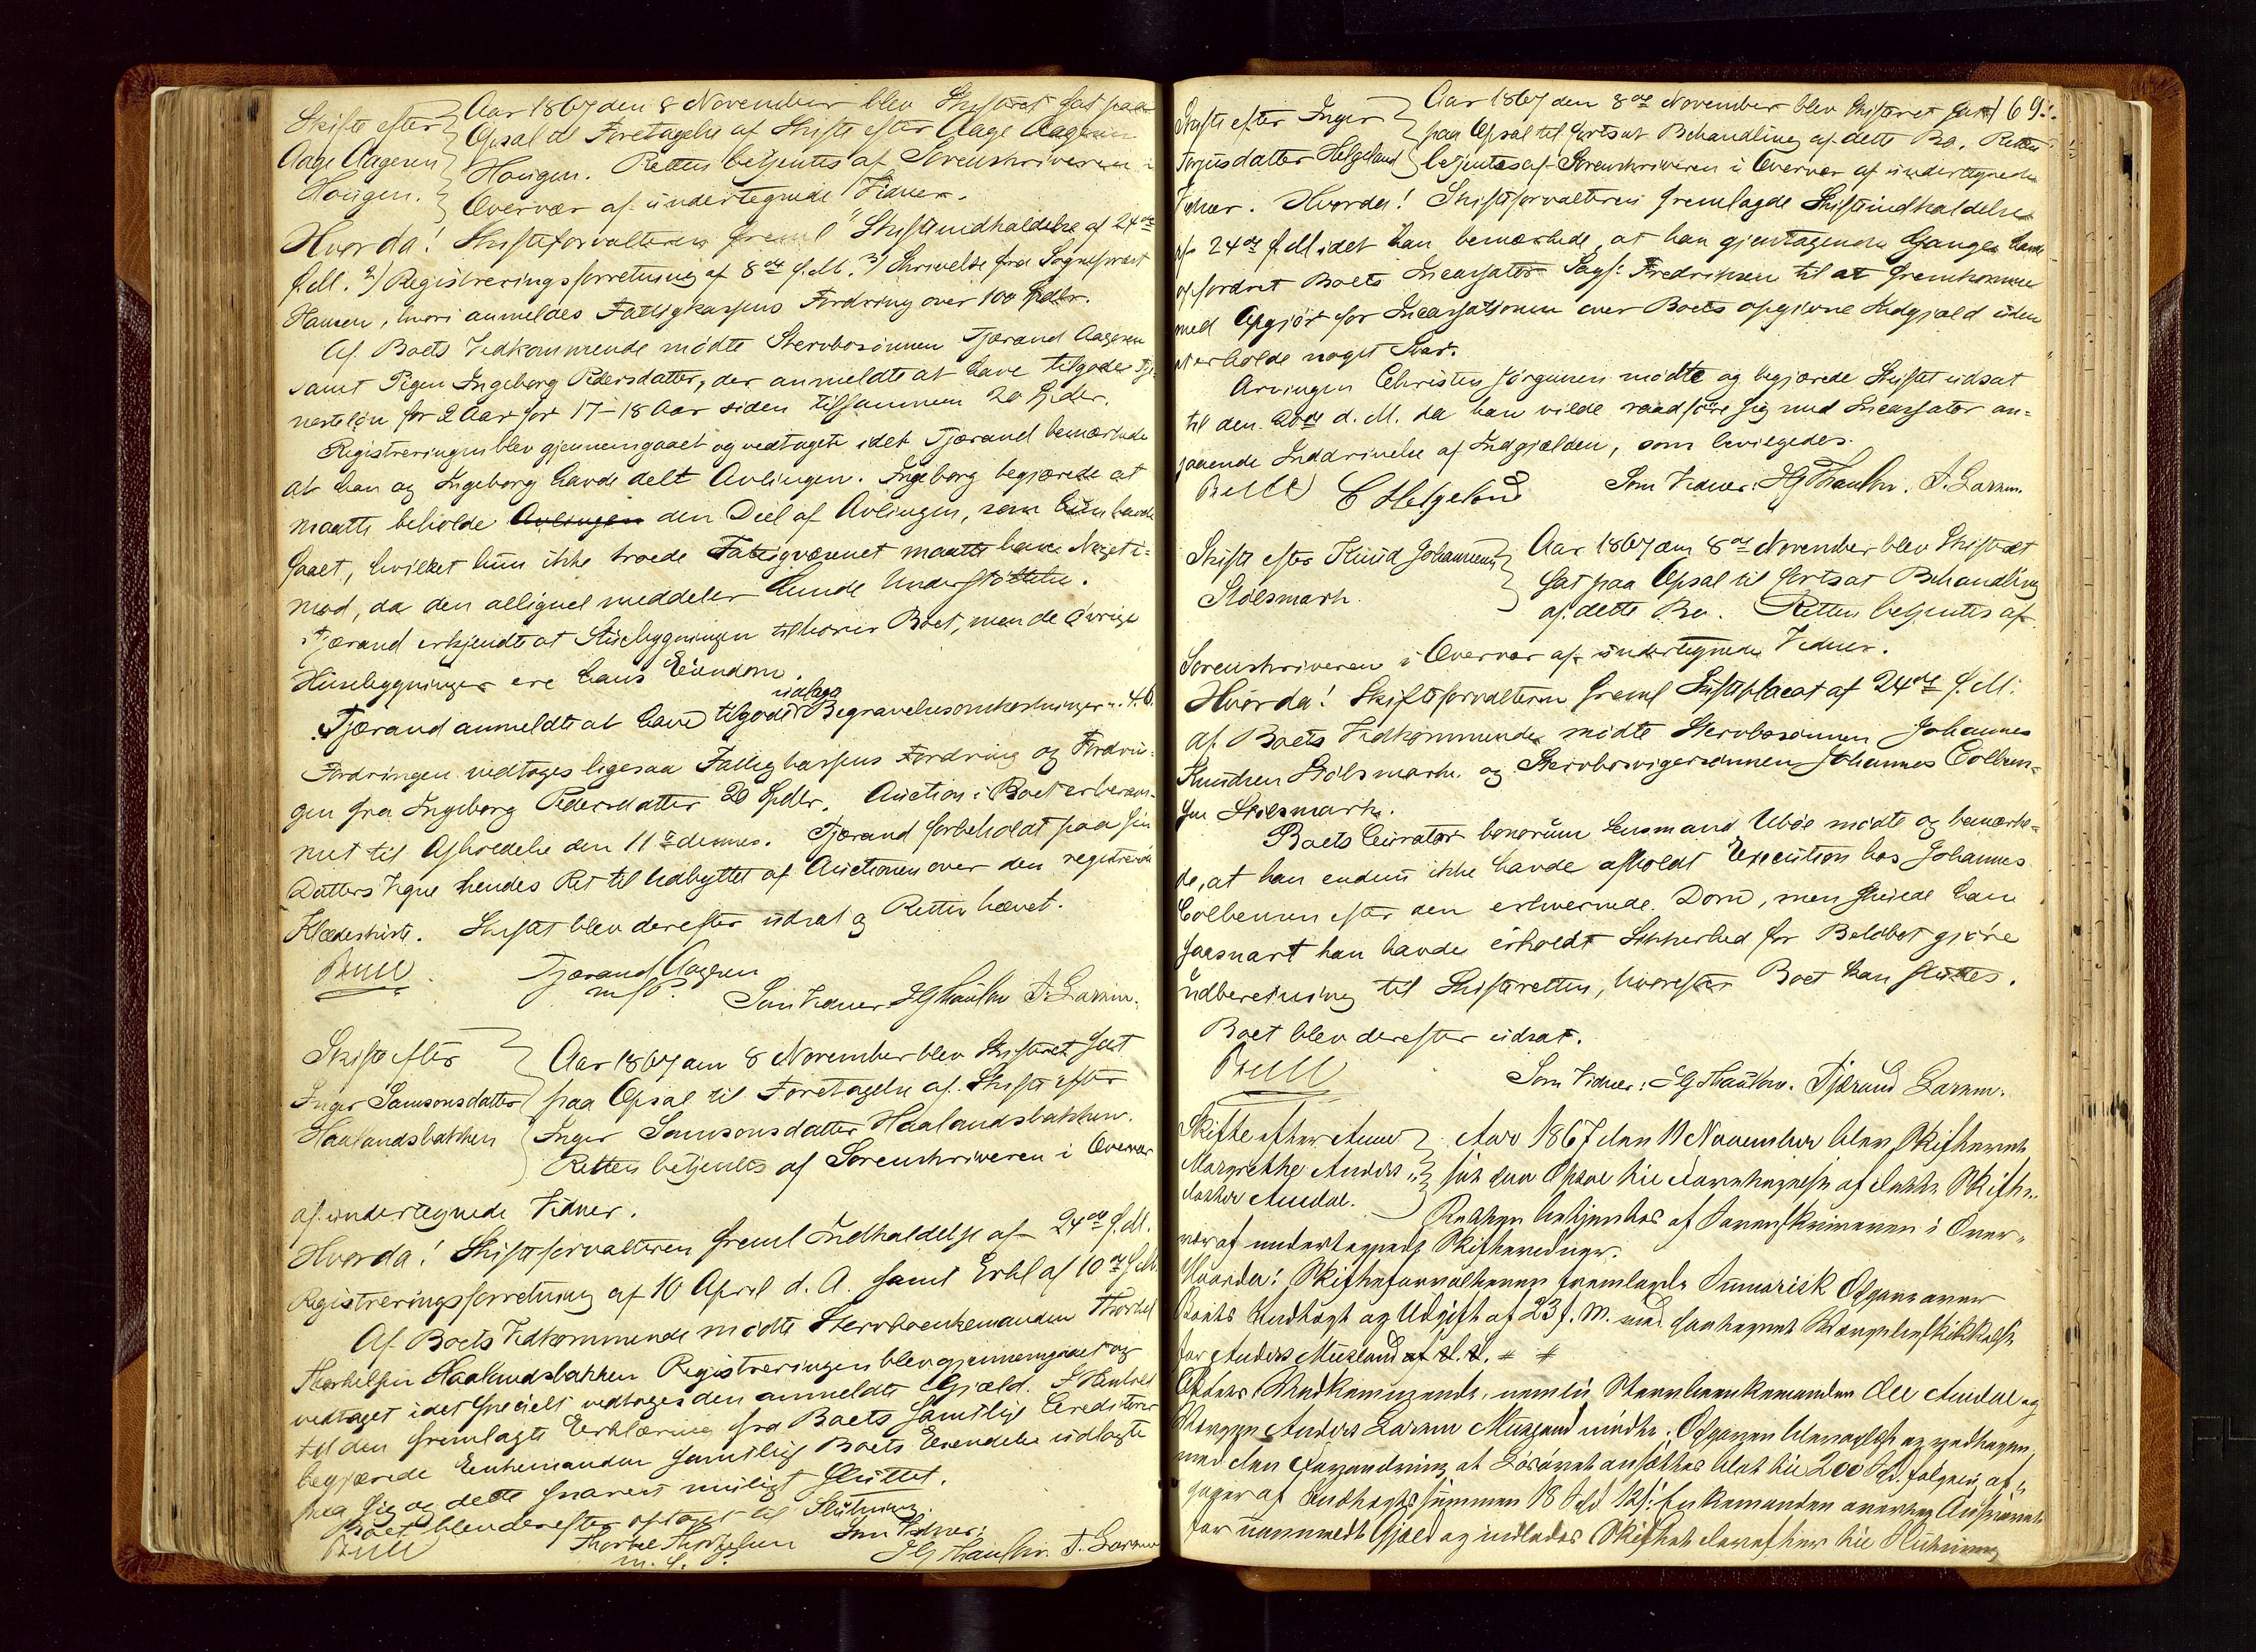 Skifte efter
Aage Aagesen
Hougen.
Aar 1867 den 8 November blev Skifteret sat paa
Opsal til Foretagelse af Skifte efter Aage Aagesen
Hougen. Retten betjentes af Sorenskriveren i
Overvær af undertegnede Vidner.
Hvorda! Skifteforvalteren freml 1) Skifteindkaldelse af 24de
f.M. 2) Registreringsforretning af 8de f.M. 3) Skrivelse fra Sognepræst
Hansen, hvori anmeldes Fattigkassens Fordring over 100 Spdlr.
Af Boets Vedkommende mødte Stervbosønnen Tjærand Aagesen
samt Pigen Ingeborg Pedersdatter, der anmeldte at have tilgode Tje-
nesteløn for 2 Aar for 17-18 Aar siden tilsammen 20 Spdlr.
Registreringen blev gjennemgaaet og vedtaget idet Tjærand bemærkede
at han og Ingeborg havde delt Avlingen. Ingeborg begjærede at
maatte beholde Avlingen den Deel af Avlingen, som hun havde
faaet, hvilket hun ikke troede Fattigvæsenet maatte have Noget i-
mod, da den alligevel meddeler hende Understøttelse.
Tjærand erkjendte at Stuebygningen tilhører Boet, men de øvrige
Husebygninger ere hans Eiendom.
Tjærand anmeldte at have tilgode udlagt Begravelsesomkostninger .. 4.6.
Fordringen vedtoges ligesaa Fattigkassens Fordring og Fordrin-
gen fra Ingeborg Pedersdatter 20 Spdlr. Auction i Boet er beram-
met til Afholdelse den 11te dennes. Tjærand forbeholdt paa sin
Datters Vegne hendes Ret til Udbyttet af Auctionen over den registrerede
Klædeskiste. Skiftet blev derefter udsat og Retten hævet.
Tjærand Aagesen
m.f.P.
Som Vidner T. Larsen.
Skifte efter
Inger Samsonsdatter
Haalandsbakken
Aar 1867 den 8 November blev Skifteret sat
paa Opsal til Foretagelse af Skifte efter
Inger Samsonsdatter Haalandsbakken.
Retten betjentes af Sorenskriveren i Overvær
af undertegnede Vidner.
Hvorda! Skifteforvalteren freml Indkaldelse af 24de f.M.
Registreringsforretning af 10 April d. A. samt Erkl af 10de f.M.
Af Boets Vedkommende mødte Stervboenkemanden Thorkel
Thorkelsen Haalandsbakken. Registreringen blev gjennemgaaet og
vedtaget idet specielt vedtoges den anmeldte Gjæld. I Henhold
til den fremlagte Erklæring fra Boets samtlige Creditorer
begjærede Enkemanden samtlig Boets Eiendele udlagte
paa sig og dette snarest muligt sluttet.
Boet blev derefter optaget til Slutning.
Thorkel Thorkelsen
m. f. P.
Som Vidner:
T. Larsen
169.
Skifte efter Inger
datter Helgeland
Aar 1867 den 8de November blev Skifteret sat
paa Opsal til fortsat Behandling af dette Bo. Retten
betjentes af Sorenskriveren i Overvær af undertegnede
Vidner. Hvorda! Skifteforvalteren fremlagde Skifteindkaldelse
af 24de f.M. idet han bemærkede, at han gjentagende Gange havde
opfordret Boets Incassator Sagf: Fredriksen til at fremkomme
med Opgjør for Incassationen over Boets opgivne Indgjæld uden
at erholde noget Svar.
Arvingen Christen Jørgensen mødte og begjærede Skiftet udsat
til den d. M. da han vilde raadføre sig med Incassator an-
gaaende Inddrivelse af Indgjælden, som bevilgedes.
C Helgeland Som Vidner: T. Larsen.
Skifte efter Knud Johannesen
Stølsmark.
Aar 1867 den 8de November blev Skifteret
sat paa Opsal til fortsat Behandling
af dette Bo. Retten betjentes af
Sorenskriveren i Overvær af undertegnede Vidner.
Hvorda! Skifteforvalteren freml Skifteplacat af 24de f.M.
Af Boets Vedkommende mødte Stervbosønnen Johannes
Knudsen Stølsmark og Stervbosvigersønnen Johannes Colben-
sen Stølsmark.
Boets Curator bonorum Lensmand Ubøe mødte og bemærke-
de, at han endnu ikke havde afholdt Execution hos Johannes
Colbensen efter den erhvervede Dom, men skulde han
saasnart han havde erholdt Sikkerhed for Beløbet gjøre
Indberetning til Skifteretten, hvorefter Boet kan sluttes.
Boet blev derefter udsat.
Som Vidner: Tjærand Larsen.
Skifte efter Anne
Margrethe Anders-
datter Amdal.
Aar 1867 den 11 November blev Skifteret
sat paa Opsal til Foretagelse af dette Skifte.
Retten betjentes af Sorenskriveren i Over-
vær af undertegnede Skiftevidner.
Hvorda! Skifteforvalteren fremlagde Summarisk Opgave over
Boets Indtægt og Udgift af 23 f. M. med paategnet Værgebeskikkelse
for Anders Musland af d. d.
Boets Vedkommende, nemlig Stervboenkemanden Ole Amdal og
Værgen Anders Larsen Musland mødte. Opgaven blev oplæst og vedtagen
med den Forandring at Løsøret ansættes blot til 200 Spd. følgelig af-
gaar af Indtægtssummen 18 Spd 12 s: Enkemanden overtog Ansvaret
for uanmeldt Gjæld og indlodes Skiftet derefter til Slutning